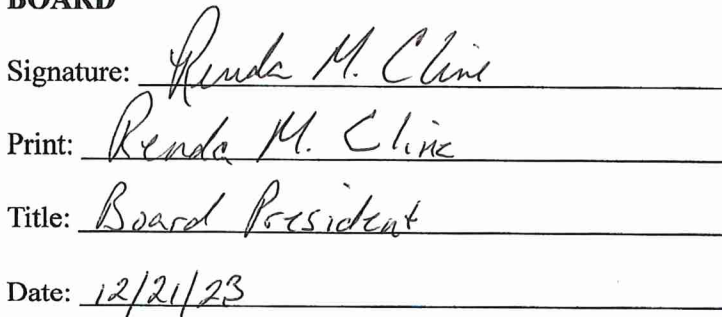 BOARD
Signature: Renda M. Cline
Print: Renda M. Cline
Title: Board President
Date: 12/21/23